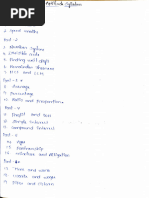 Aptitude Syllabus
2. Speed maths
Part - 2
3 Number System
4 Divisible rule
5 Finding unit digit
6 Remainder Theorem
7 HCF and LCM
Part - 3
8 Average
9 Percentage
10 Ratio and Proportion
Part - 4
11 Profit and Loss
12 Simple Interest
13 Compound Interest
14 Ages
15 Partnership
16 Mixture and Alligation
17 Time and work
18 Work and wage
19 Pipes and Cistern